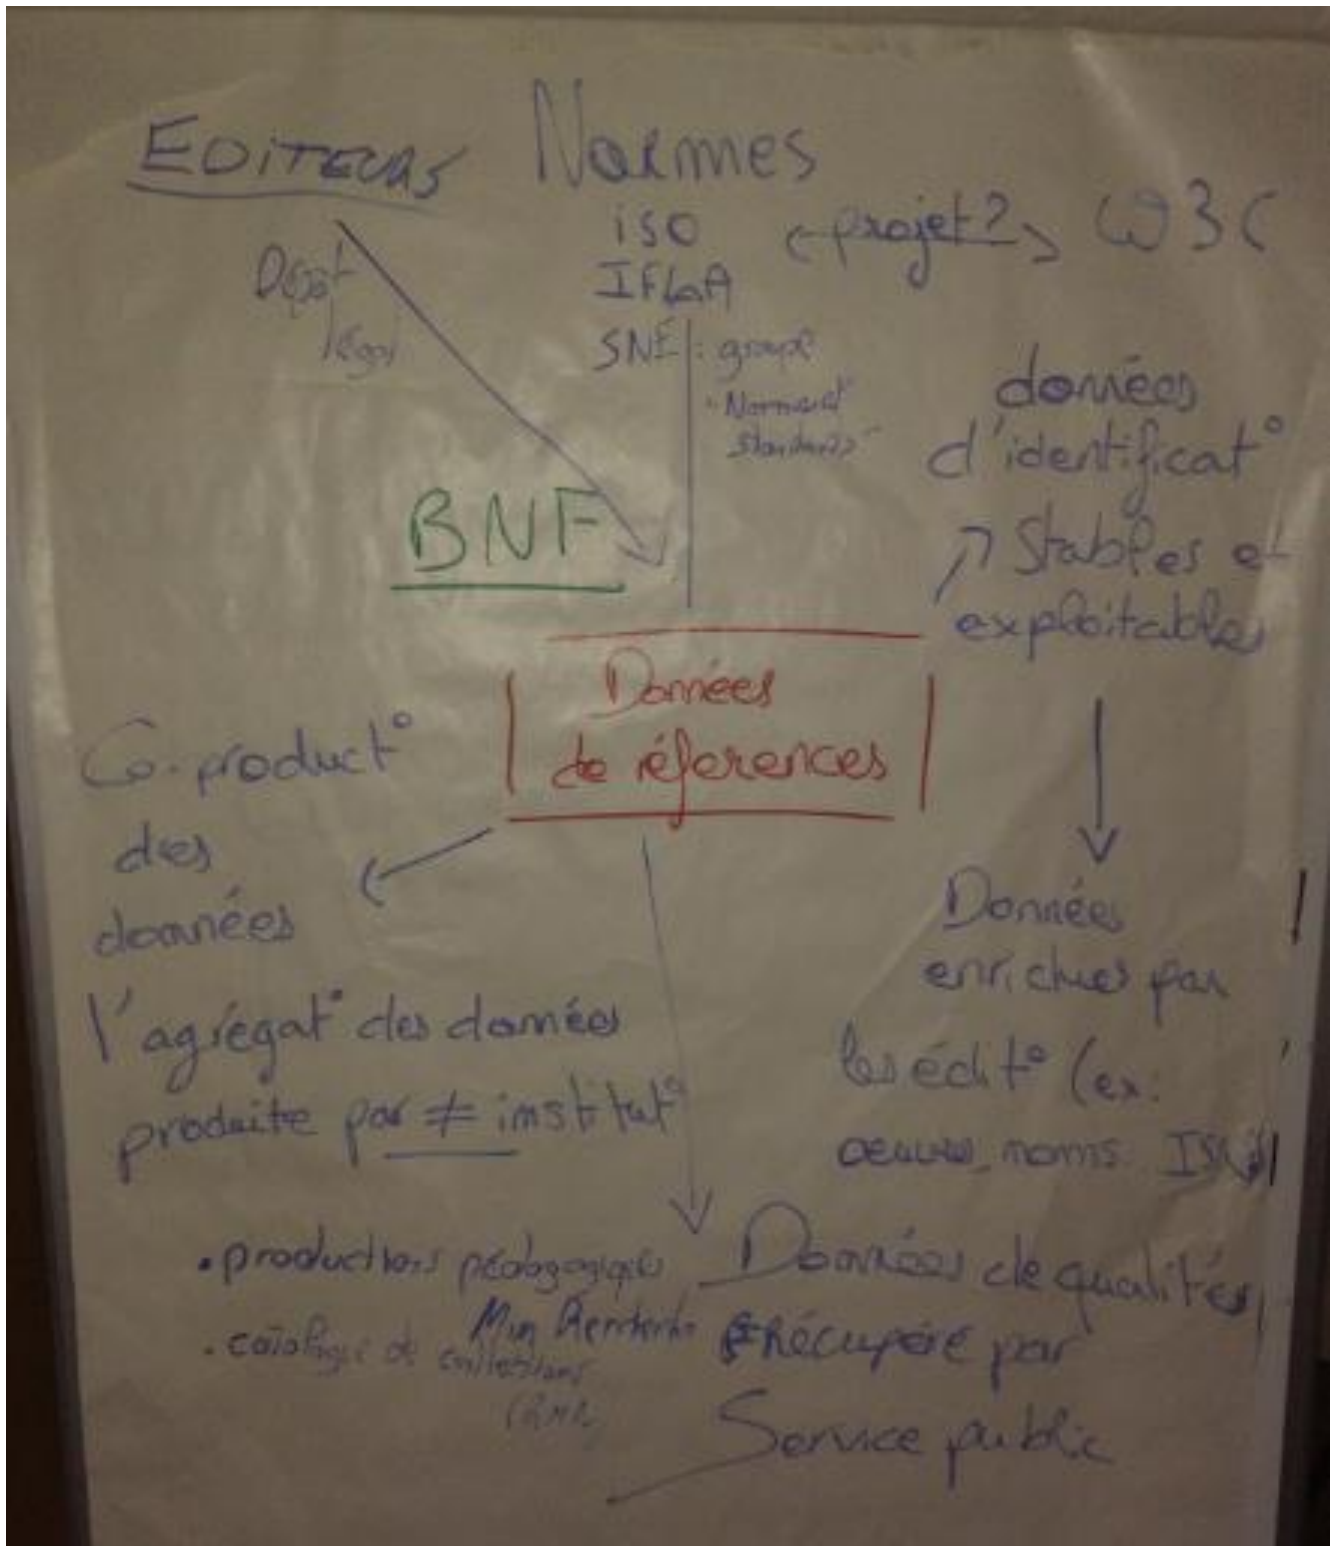 EDITEURS
Normes
iso
IFLA
<-projet?-> W3C
Dépôt
légal
SNE : groupe
"Normes et
Standards"
BNF
données
d'identificat°
Stables et
exploitables
Données
de réferences
Co-product°
des
données
l'agrégat° des données
produite par ≠ institut°
Données
enrichies par
les édit° (ex:
oeuvres, noms: ISNI
• productions pédagogiques
• catalogue de collections
Données de qualités
Récupéré par
Service public